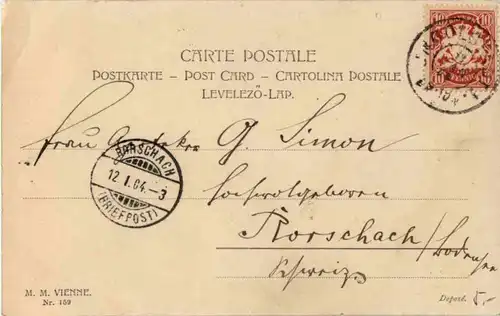 CARTE POSTALE
POSTKARTE – POST CARD – CARTOLINA POSTALE
LEVELEZŐ-LAP.
10 10
Frau G. Simon
RORSCHACH
12.I.04.–3
(BRIEFPOST)
Hochwolgeboren
Rorschach / Bodensee
Schweiz
M. M. VIENNE.
Nr. 159
Depost. 5.–